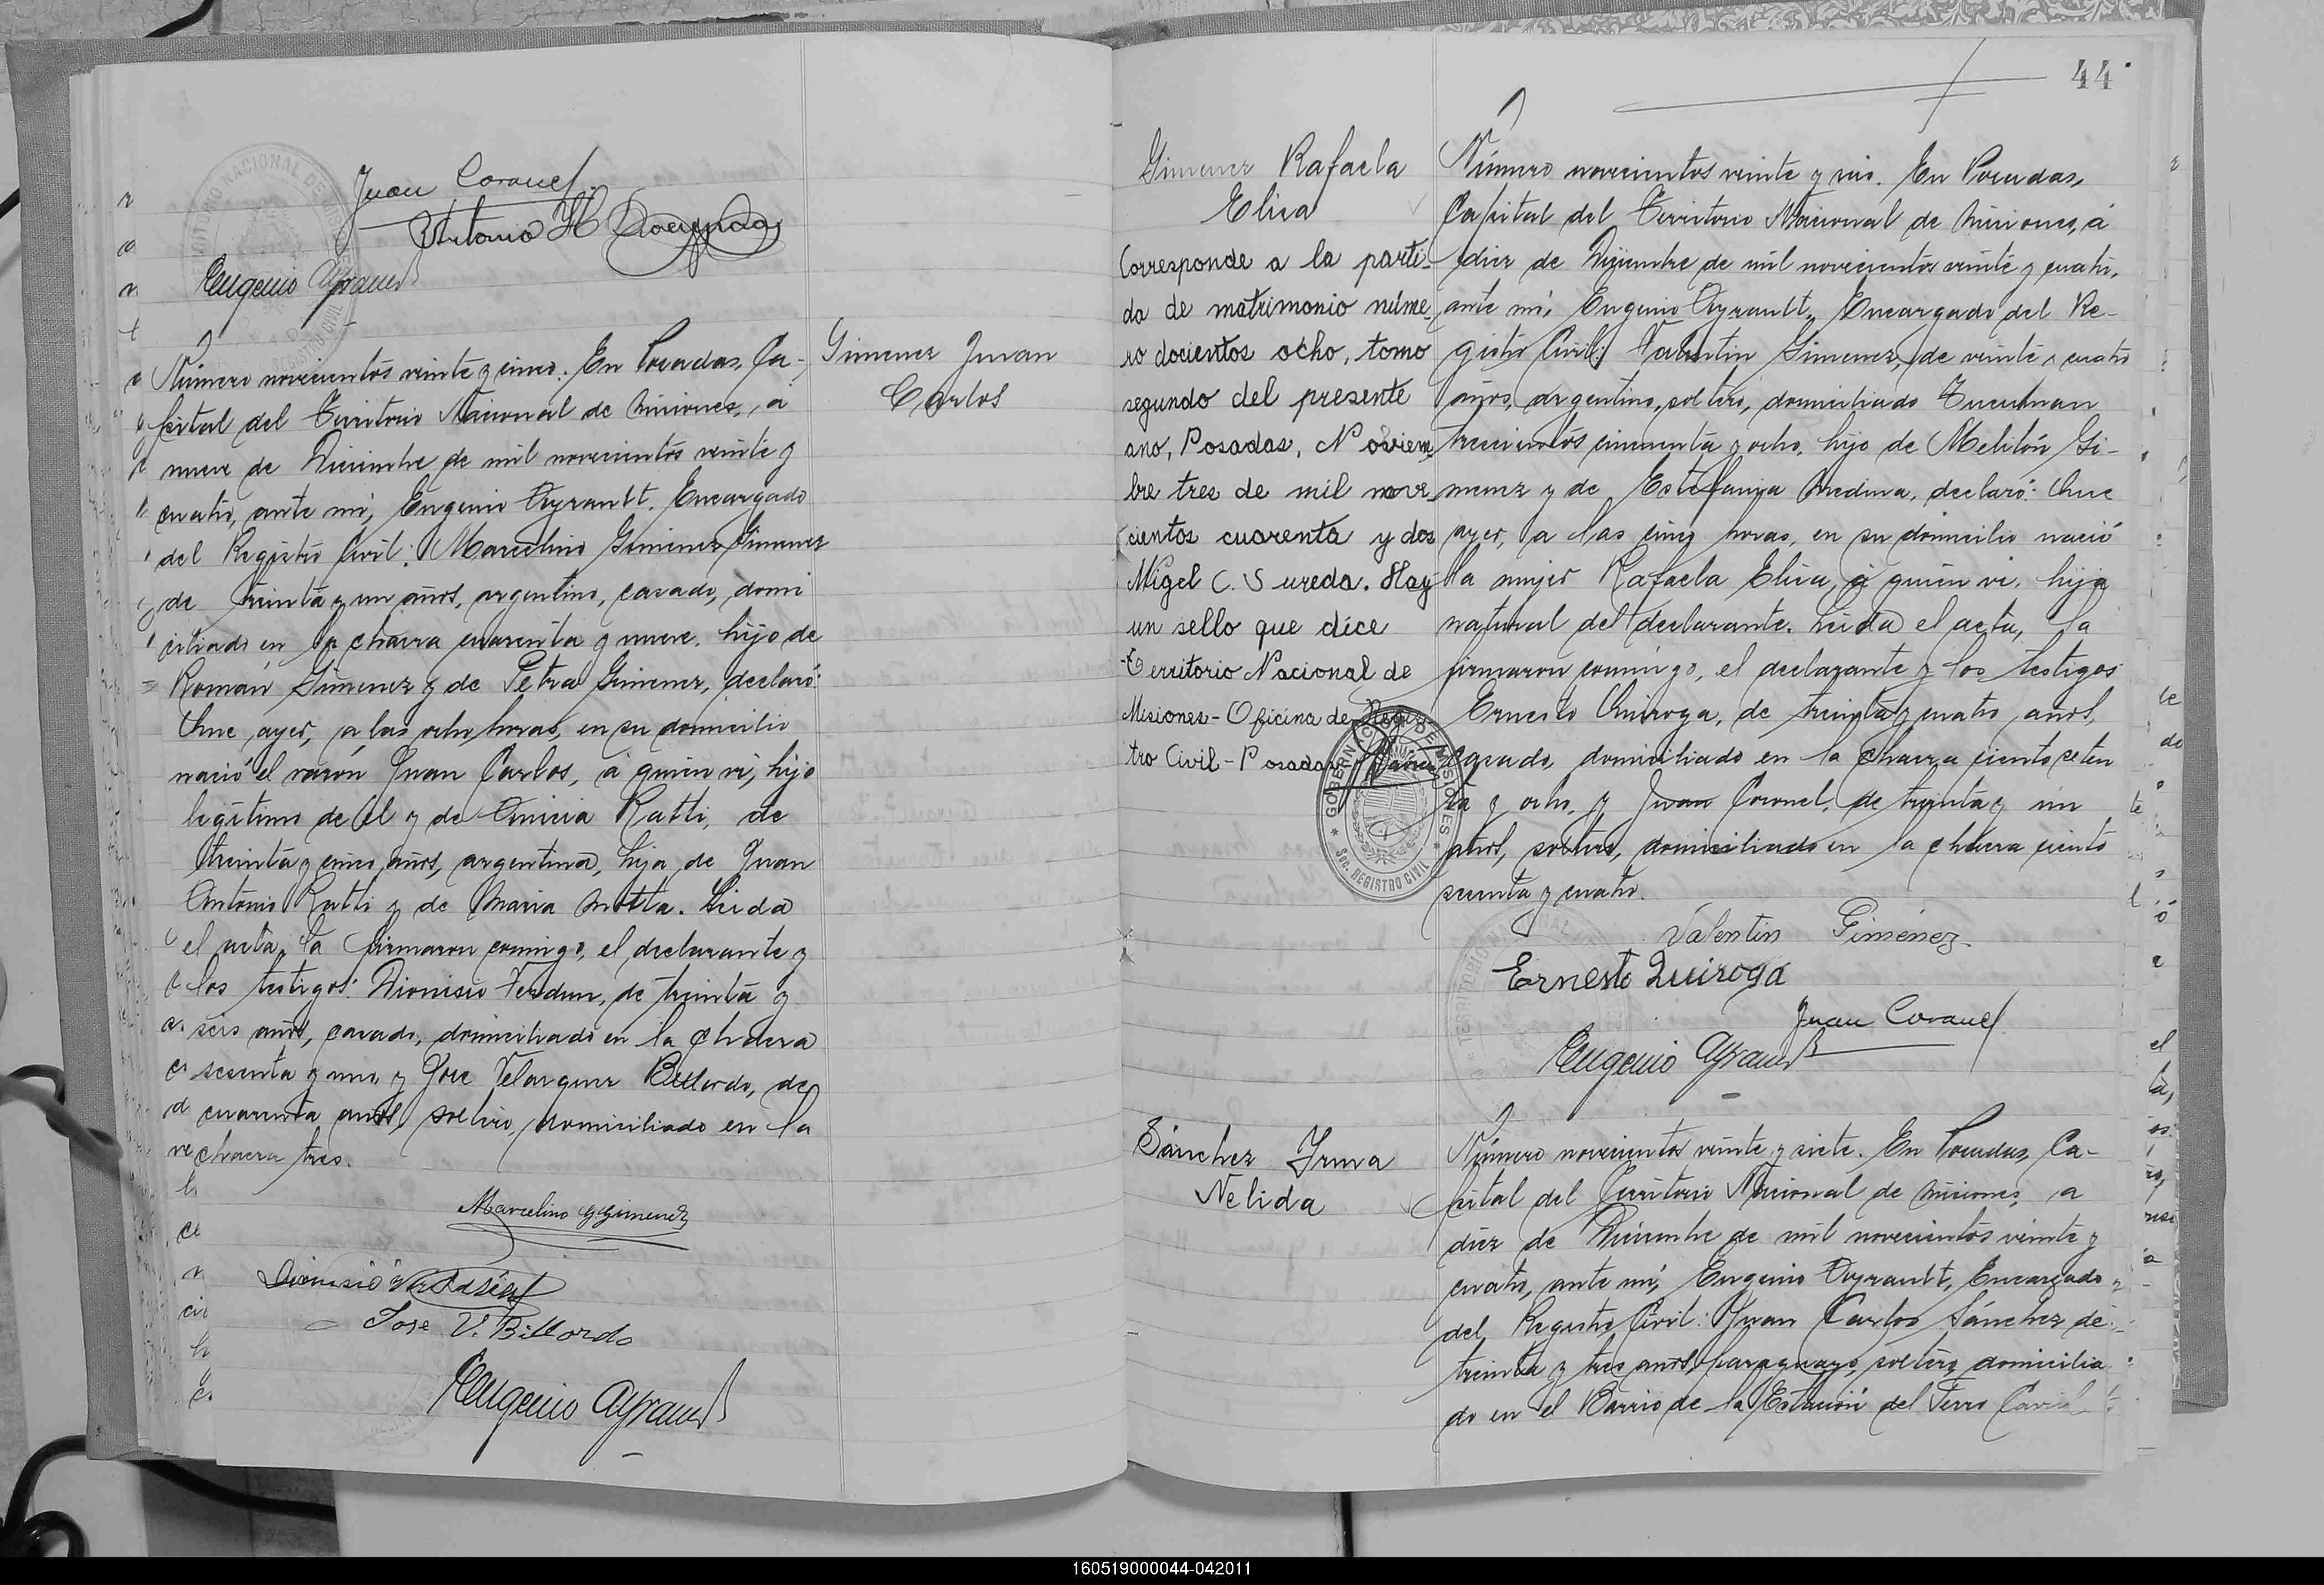 Juan Coronel
Antonio H
Eugenio Ayrault
Número novecientos veinte y cinco. En Posadas, Ca-
pital del Territorio Nacional de Misiones, a
nueve de Diciembre de mil novecientos veinte y
cuatro, ante mí, Eugenio Ayrault, Encargado
del Registro Civil: Marcelino Gimenez Gimenez
de treinta y un años, argentino, casado, domi
ciliado en la chacra cuarenta y nueve, hijo de
Román Gimenez y de Petra Gimenez, declaró:
Que ayer, a las ocho horas, en su domicilio
nació el varón Juan Carlos, á quien vi, hijo
legítimo de él y de Anicia Ratti, de
treinta y cinco años, argentina, hija de Juan
Antonio Ratti y de Maria Motta. Leida
el acta, la firmaron conmigo, el declarante y
los testigos: Dionisio Verdun, de treinta y
seis años, casado, domiciliado en la chacra
sesenta y uno y Jose Velazquez Billordo, de
cuarenta años, soltero, domiciliado en la
chacra tres.
Marcelino G Gimenez
Dionisio
Jose V. Billordo
Eugenio Ayrault
Gimenez Juan
Carlos
44
Gimenez Rafaela
Elisa
Corresponde a la parti-
da de matrimonio núme-
ro docientos ocho, tomo
segundo del presente
ano, Posadas, Noviem-
bre tres de mil nove
cientos cuarenta y dos
Migel C. Sureda. Hay
un sello que dice
Territorio Nacional de
Misiones - Oficina de Regis
tro Civil - Posadas
GOBERNACION DE MISIONES
Sec. REGISTRO CIVIL
Número novecientos veinte y seis. En Posadas,
Capital del Territorio Nacional de Misiones, á
diez de Diciembre de mil novecientos veinte y cuatro,
ante mí, Eugenio Ayrault, Encargado del Re-
gistro Civil: Valentin Gimenez, de veinte y cuatro
años, argentino, soltero, domiciliado Tucuman
trecientos cincuenta y ocho, hijo de Melitón Gi-
menez y de Estefania Medina, declaró: Que
ayer, a las cinco horas, en su domicilio nació
la mujer Rafaela Elisa, á quien vi, hija
natural del declarante. Leida el acta, la
firmaron conmigo, el declarante y los testigos
Ernesto Quiroga, de treinta y cuatro años,
casado, domiciliado en la chacra ciento seten
ta y ocho, y Juan Coronel, de treinta y un
años, soltero, domiciliado en la chacra ciento
sesenta y cuatro.
Valentin Giménez
Ernesto Quiroga
Juan Coronel
Eugenio Ayrault
Sánchez Irma
Nelida
Número novecientos veinte y siete. En Posadas, Ca-
pital del Territorio Nacional de Misiones, a
diez de Diciembre de mil novecientos veinte y
cuatro, ante mí, Eugenio Ayrault, Encargado
del Registro Civil: Juan Carlos Sánchez de
treinta y tres años, paraguayo, soltero, domicilia
do en el Barrio de la Estación del Ferro Carril
160519000044-042011